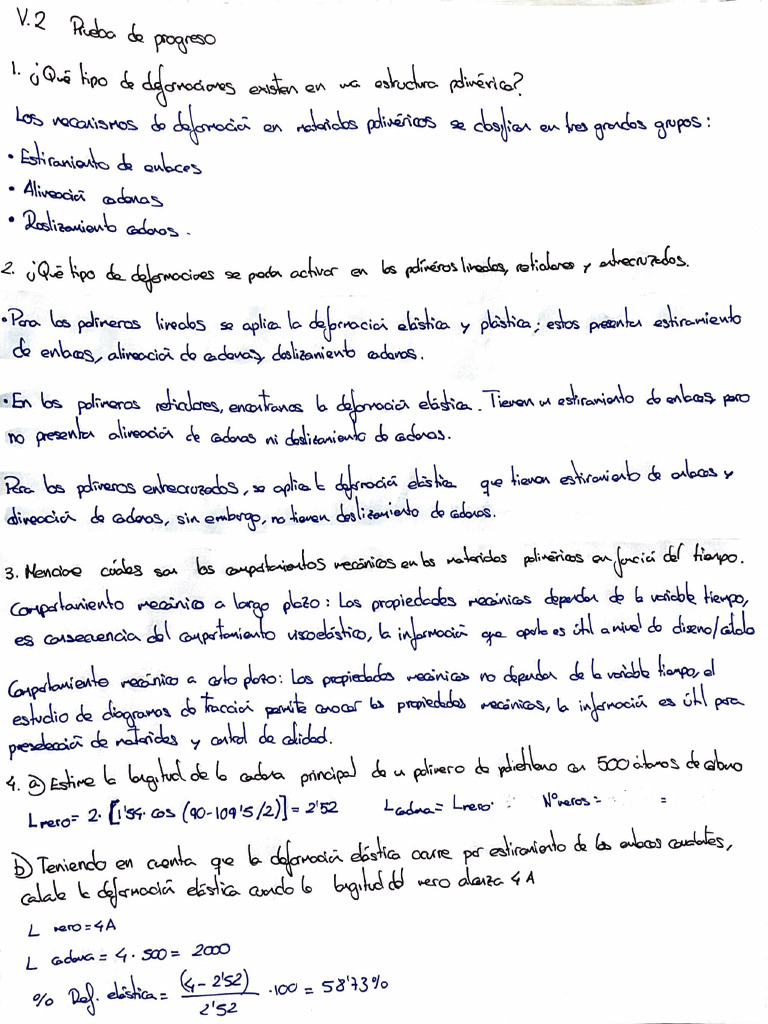 V.2 Prueba de progreso
1. ¿Qué tipo de deformaciones existen en una estructura polimérica?
Los mecanismos de deformación en materiales poliméricos se clasifican en tres grandes grupos:
• Estiramiento de enlaces
• Alineación cadenas
• Deslizamiento cadenas.
2. ¿Qué tipo de deformaciones se puede activar en los polímeros lineales, reticulares y entrecruzados.
• Para los polimeros lineales se aplica la deformación elástica y plástica; estos presentan estiramiento
de enlaces, alineación de cadenas, deslizamiento cadenas.
• En los polimeros reticulares, encontramos la deformación elástica. Tienen un estiramiento de enlaces, pero
no presentan alineación de cadenas ni deslizamiento de cadenas.
Para los polimeros entrecruzados, se aplica la deformación elástica que tienen estiramiento de enlaces y
alineación de cadenas, sin embargo, no tienen deslizamiento de cadenas.
3. Mencione cuáles son los comportamientos mecánicos en los materiales poliméricos en función del tiempo.
Comportamiento mecánico a largo plazo: Las propiedades mecánicas dependen de la variable tiempo,
es consecuencia del comportamiento viscoelástico, la información que aporta es útil a nivel de diseño/cálculo
Comportamiento mecánico a corto plazo: Las propiedades mecánicas no dependen de la variable tiempo, el
estudio de diagramas de tracción permite conocer las propiedades mecánicas, la información es útil para
preselección de materiales y control de calidad.
4. a) Estime la longitud de la cadena principal de un polímero de polietileno con 500 átomos de carbono
L mero = 2 · [1'54 · cos (90-109'5/2)] = 2'52 L cadena = L mero · Nº meros = =
b) Teniendo en cuenta que la deformación elástica ocurre por estiramiento de los enlaces covalentes,
calcule la deformación elástica cuando la longitud del mero alcanza 4 A
L mero = 4A
L cadena = 4 · 500 = 2000
% Def. elástica = (4 - 2'52) / 2'52 · 100 = 58'73%